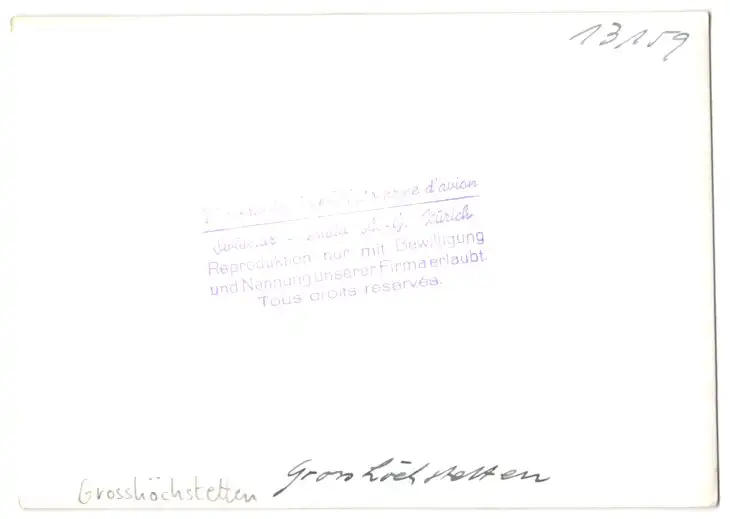 13159
d'avion
A.-G. Zürich
Reproduktion nur mit Bewilligung
und Nennung unserer Firma erlaubt.
Tous droits réservés.
Grosshöchstetten
Grosshöchstetten